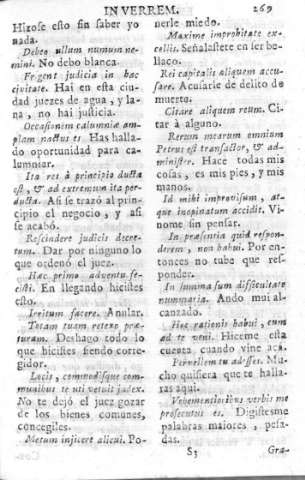 IN VERREM. 269
Hizose esto sin saber yo
nada.
Debeo ullum nummum ne-
mini. No debo blanca.
Frigent judicia in hac
civitate. Hai en esta ciu-
dad juezes de agua, y la-
na, no hai justicia.
Occasionem calumniæ am-
plam nactus es. Has halla-
do oportunidad para ca-
lumniar.
Ita res à principio ducta
est, & ad extremum ita per-
ducta. Asi se trazó al prin-
cipio el negocio, y asi
se acabó.
Rescindere judicis decre-
tum. Dar por ninguno lo
que ordenó el juez.
Hæc primo adventu fe-
cisti. En llegando hicistes
esto.
Irritum facere. Anular.
Totam tuam retexo præ-
turam. Deshago todo lo
que hicistes siendo corre-
gidor.
Locis, commodisque com-
munibus te uti vetuit judex.
No te dejó el juez gozar
de los bienes comunes,
concegiles.
Metum injicere alicui. Po-
nerle miedo.
Maxime improbitate ex-
cellis. Señalastete en ser be-
llaco.
Rei capitalis aliquem accu-
sare. Acusarle de delito de
muerte.
Citare aliquem reum. Ci-
tar à alguno.
Rerum mearum omnium
Petrus est transactor, & ad-
minister. Hace todas mis
cosas, es mis pies, y mis
manos.
Id mihi improvisum, at-
que inopinatum accidit. Vi-
nome sin pensar.
In præsentia quid respon-
derem, non habui. Por en-
tonces no tube que res-
ponder.
In summa sum difficultate
nummaria. Ando mui al-
canzado.
Hoc rationis habui, cum
ad te veni. Híceme esta
cuenta cuando vine acá.
Pervellem tu adesses. Mu-
cho quisiera que te halla-
ras aqui.
Vehementioribus verbis me
prosecutus es. Digistesme
palabras maiores, pesa-
das.
S3 Gra-